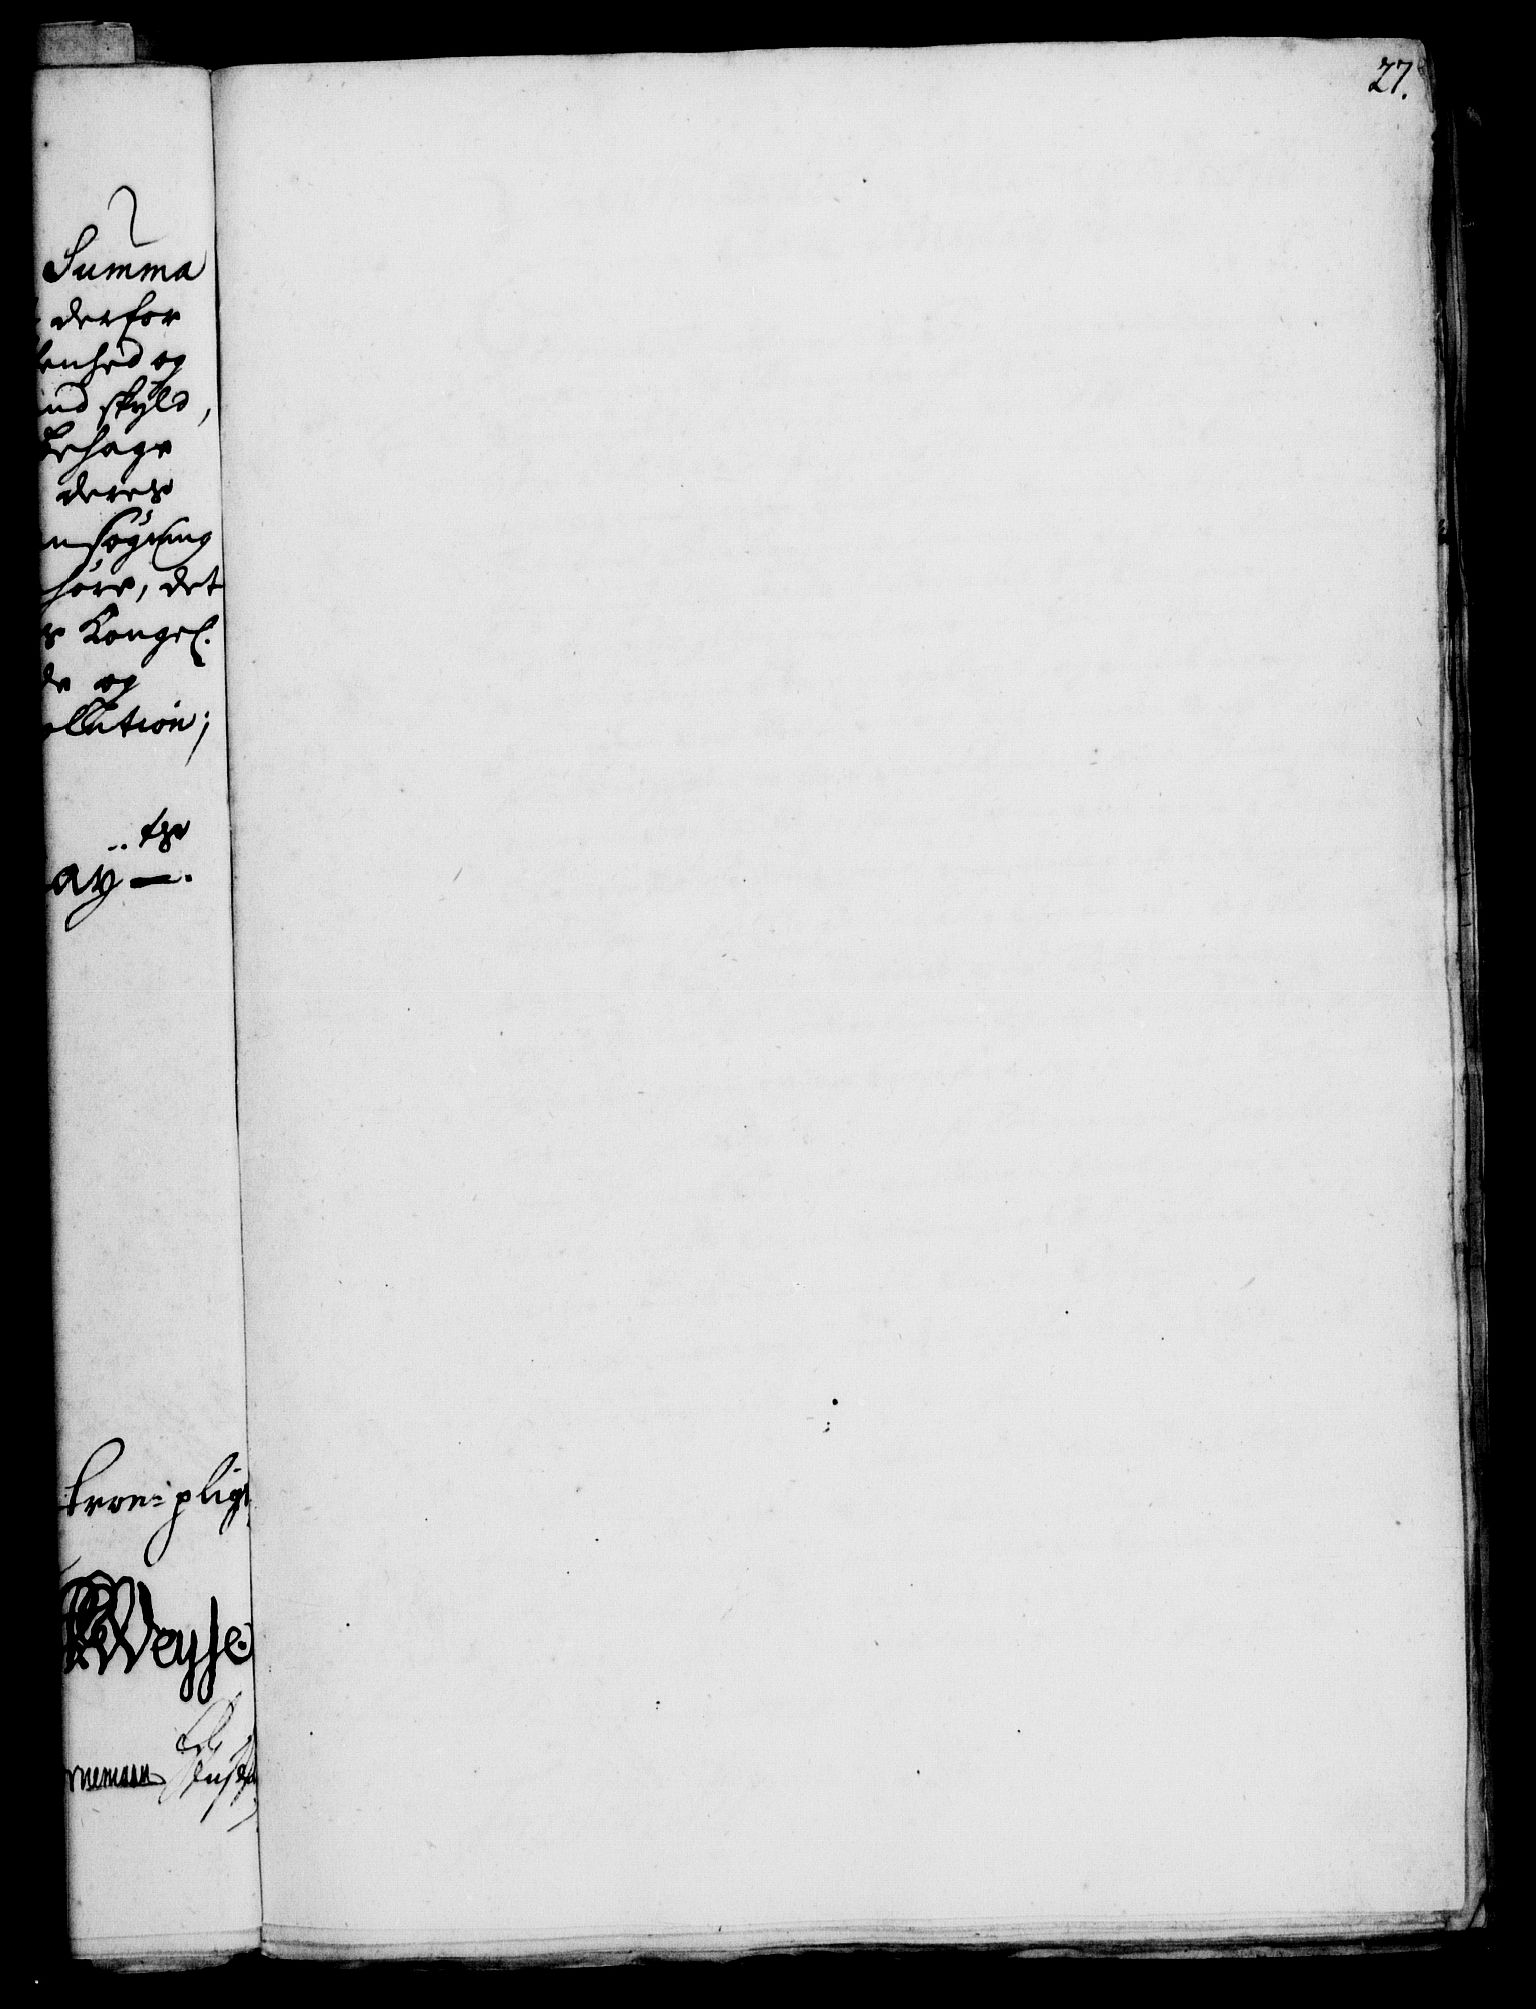 27.
Summa
derfor
enhed og
nd skyld,
behage
deres
nsøgning
høre, det
s Kongel.
de og
olution;
ay —.
troe- pligt
Weyse.
nemann